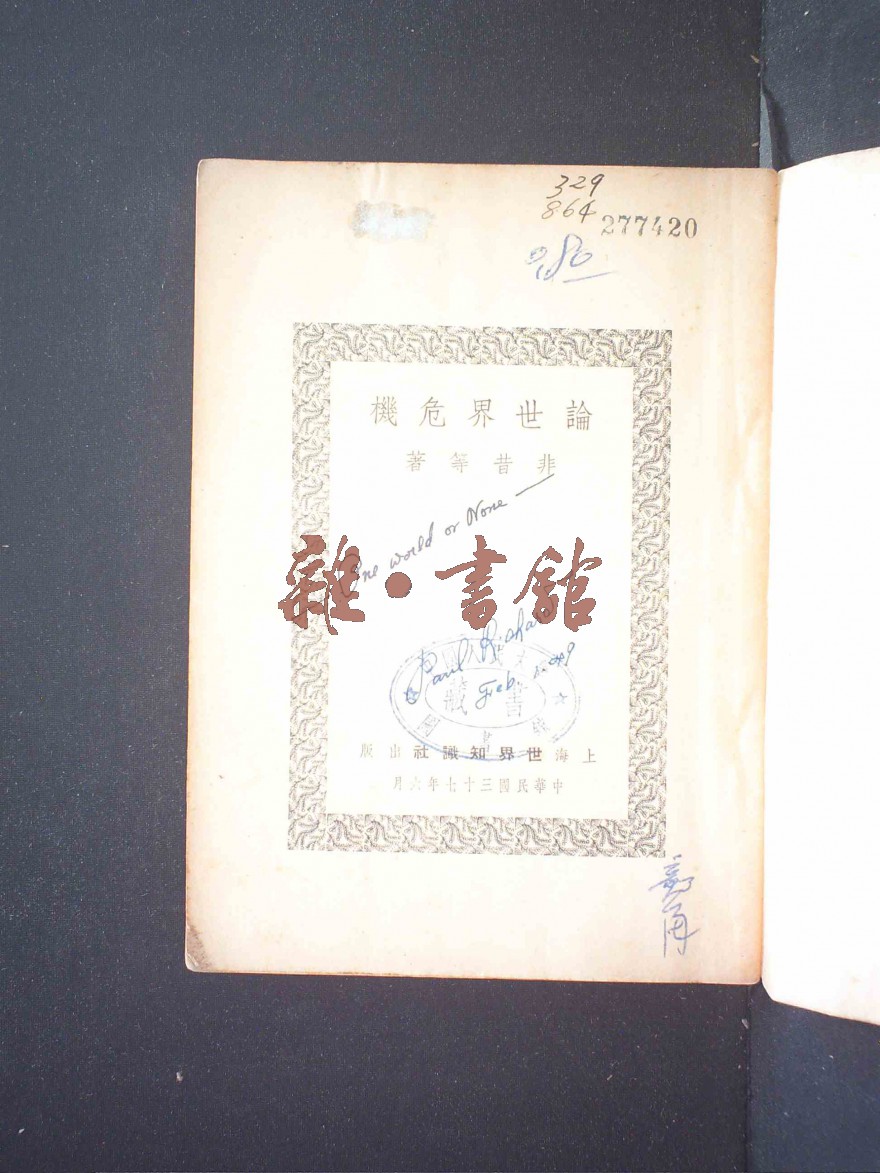 329
864
277420
論世界危機
非昔等著
One world or None —
雜·書館
Paul Richard
Feb.
書藏
上海世界知識社出版
中華民國三十七年六月